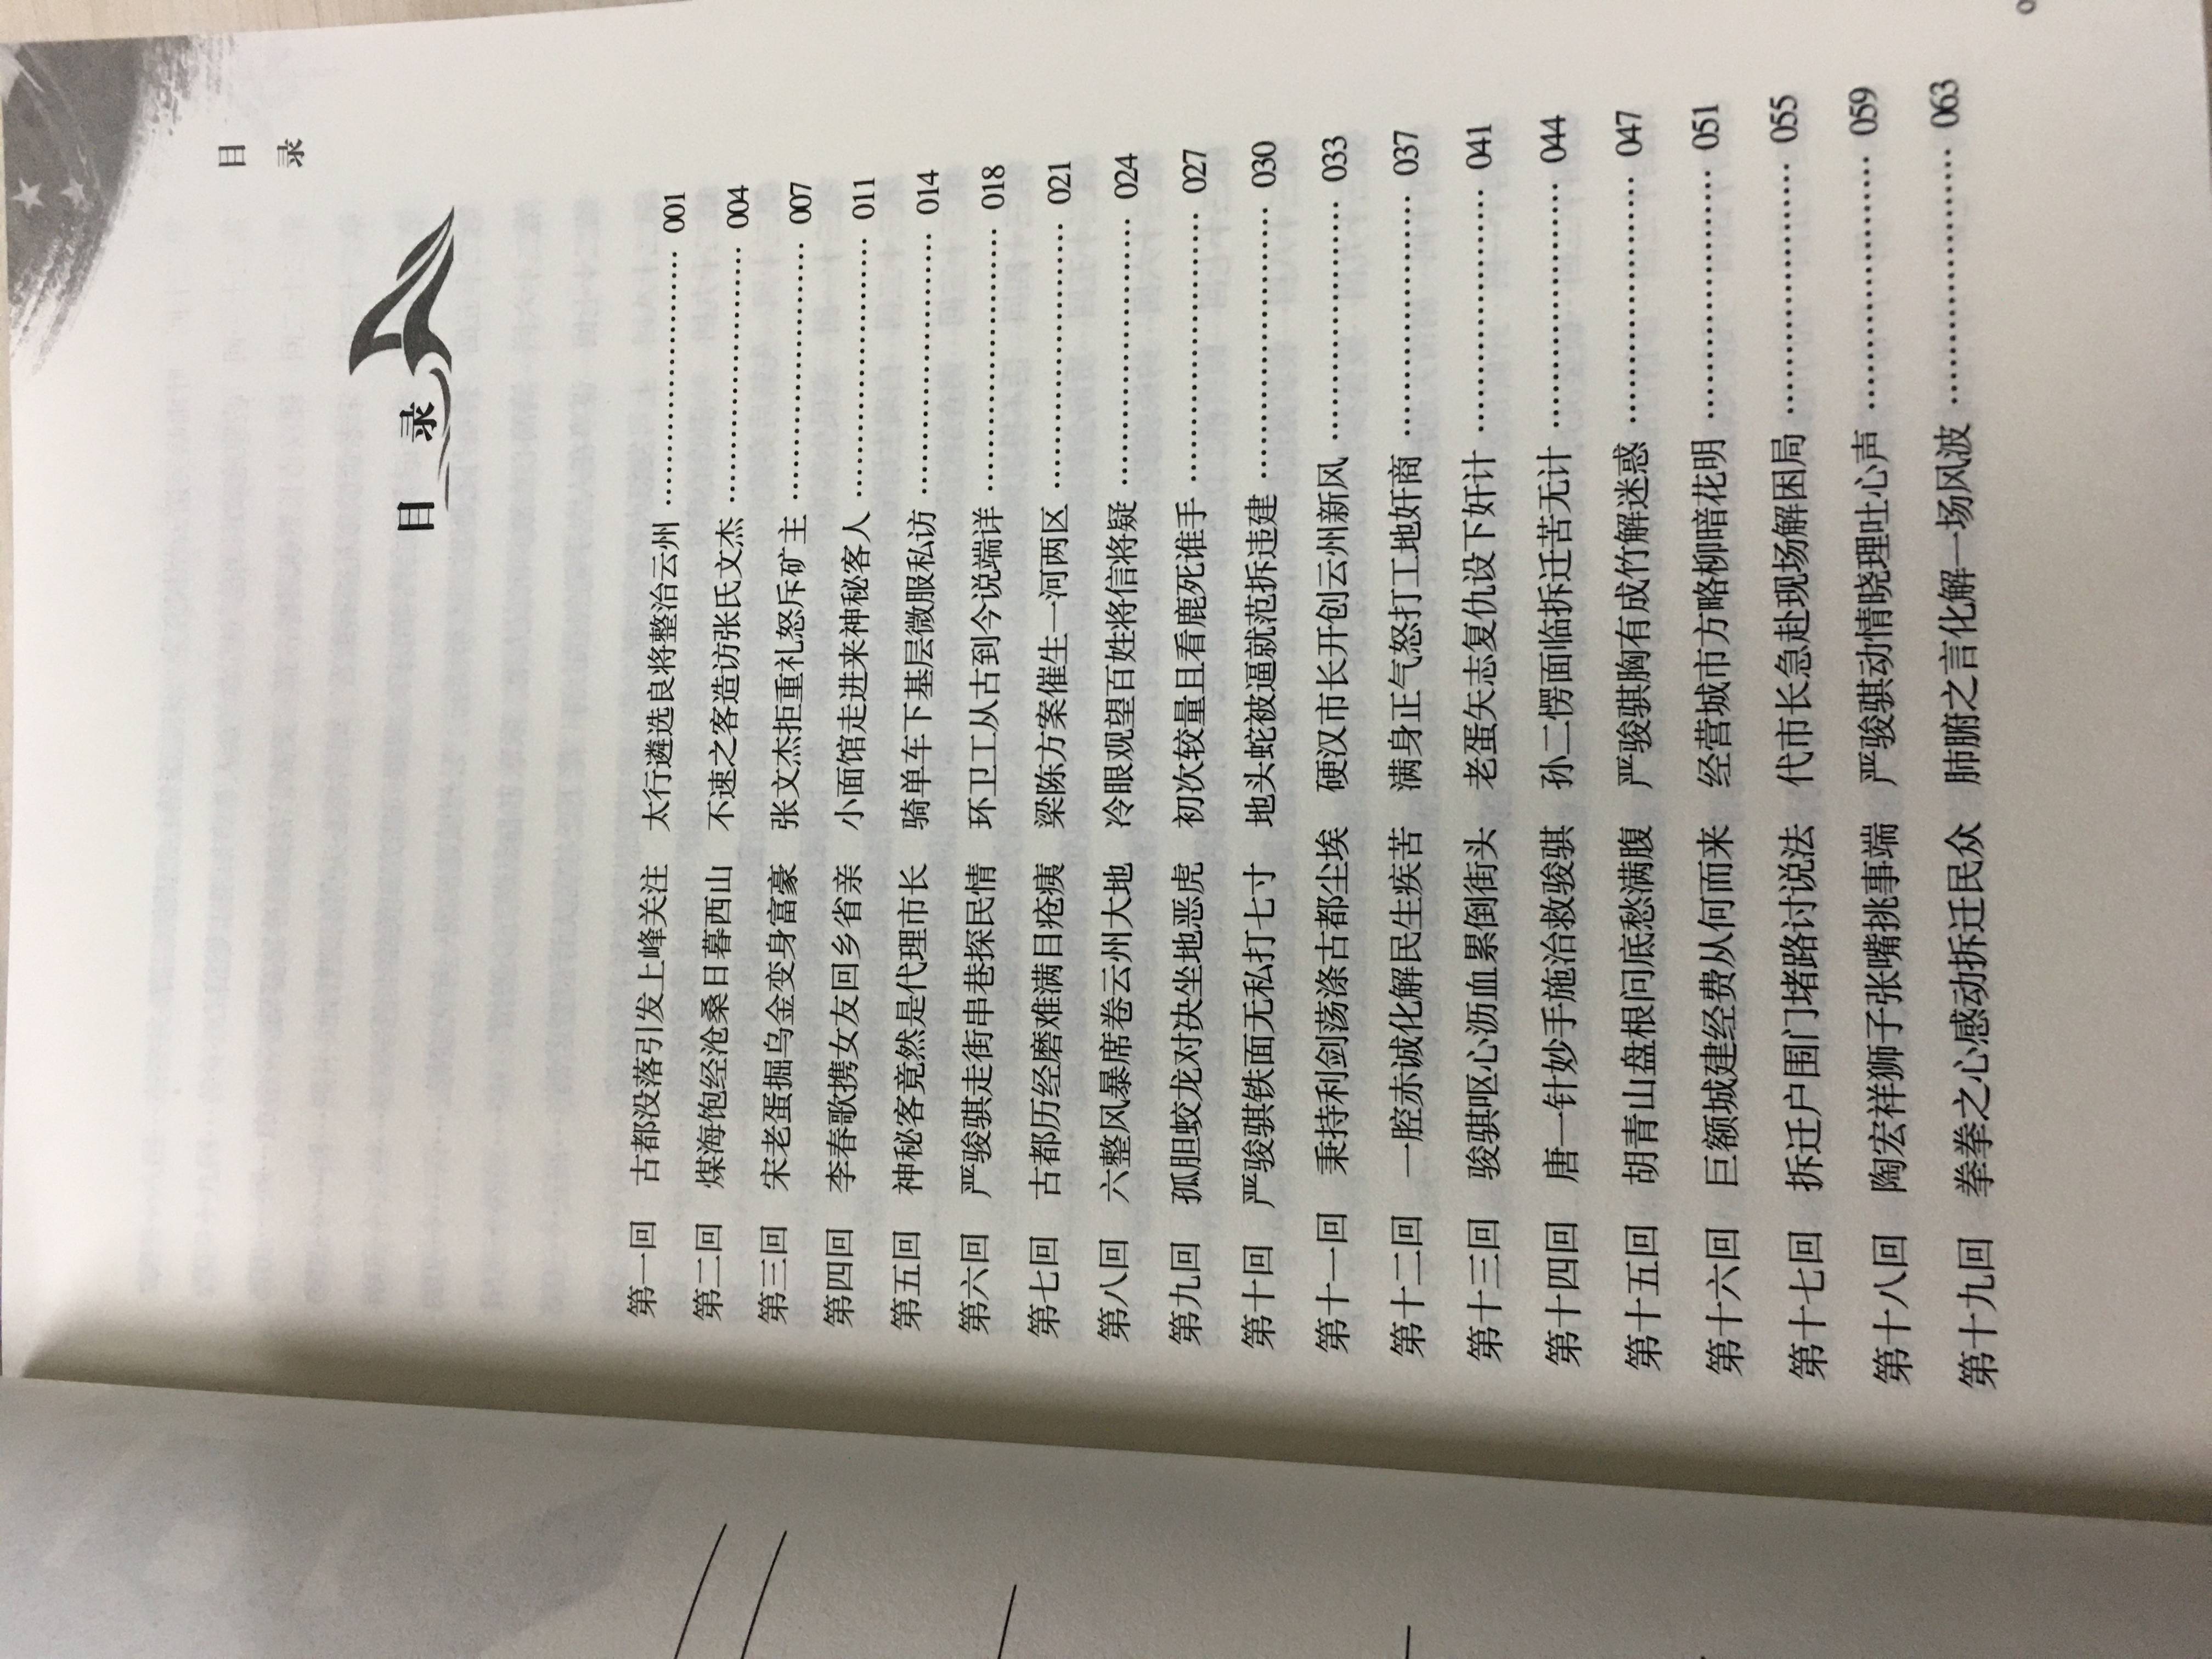 目
录
目 录
第一回 古都没落引发上峰关注 太行遴选良将整治云州 …………………… 001
第二回 煤海饱经沧桑日暮西山 不速之客造访张氏文杰 …………………… 004
第三回 宋老蛋掘乌金变身富豪 张文杰拒重礼怒斥矿主 …………………… 007
第四回 李春歌携女友回乡省亲 小面馆走进来神秘客人 …………………… 011
第五回 神秘客竟然是代理市长 骑单车下基层微服私访 …………………… 014
第六回 严骏骐走街串巷探民情 环卫工从古到今说端详 …………………… 018
第七回 古都历经磨难满目疮痍 梁陈方案催生一河两区 …………………… 021
第八回 六整风暴席卷云州大地 冷眼观望百姓将信将疑 …………………… 024
第九回 孤胆蛟龙对决坐地恶虎 初次较量且看鹿死谁手 …………………… 027
第十回 严骏骐铁面无私打七寸 地头蛇被逼就范拆违建 …………………… 030
第十一回 秉持利剑荡涤古都尘埃 硬汉市长开创云州新风 …………………… 033
第十二回 一腔赤诚化解民生疾苦 满身正气怒打工地奸商 …………………… 037
第十三回 骏骐呕心沥血累倒街头 老蛋矢志复仇设下奸计 …………………… 041
第十四回 唐一针妙手施治救骏骐 孙二愣面临拆迁苦无计 …………………… 044
第十五回 胡青山盘根问底愁满腹 严骏骐胸有成竹解迷惑 …………………… 047
第十六回 巨额城建经费从何而来 经营城市方略柳暗花明 …………………… 051
第十七回 拆迁户围门堵路讨说法 代市长急赴现场解困局 …………………… 055
第十八回 陶宏祥狮子张嘴挑事端 严骏骐动情晓理吐心声 …………………… 059
第十九回 拳拳之心感动拆迁民众 肺腑之言化解一场风波 …………………… 063